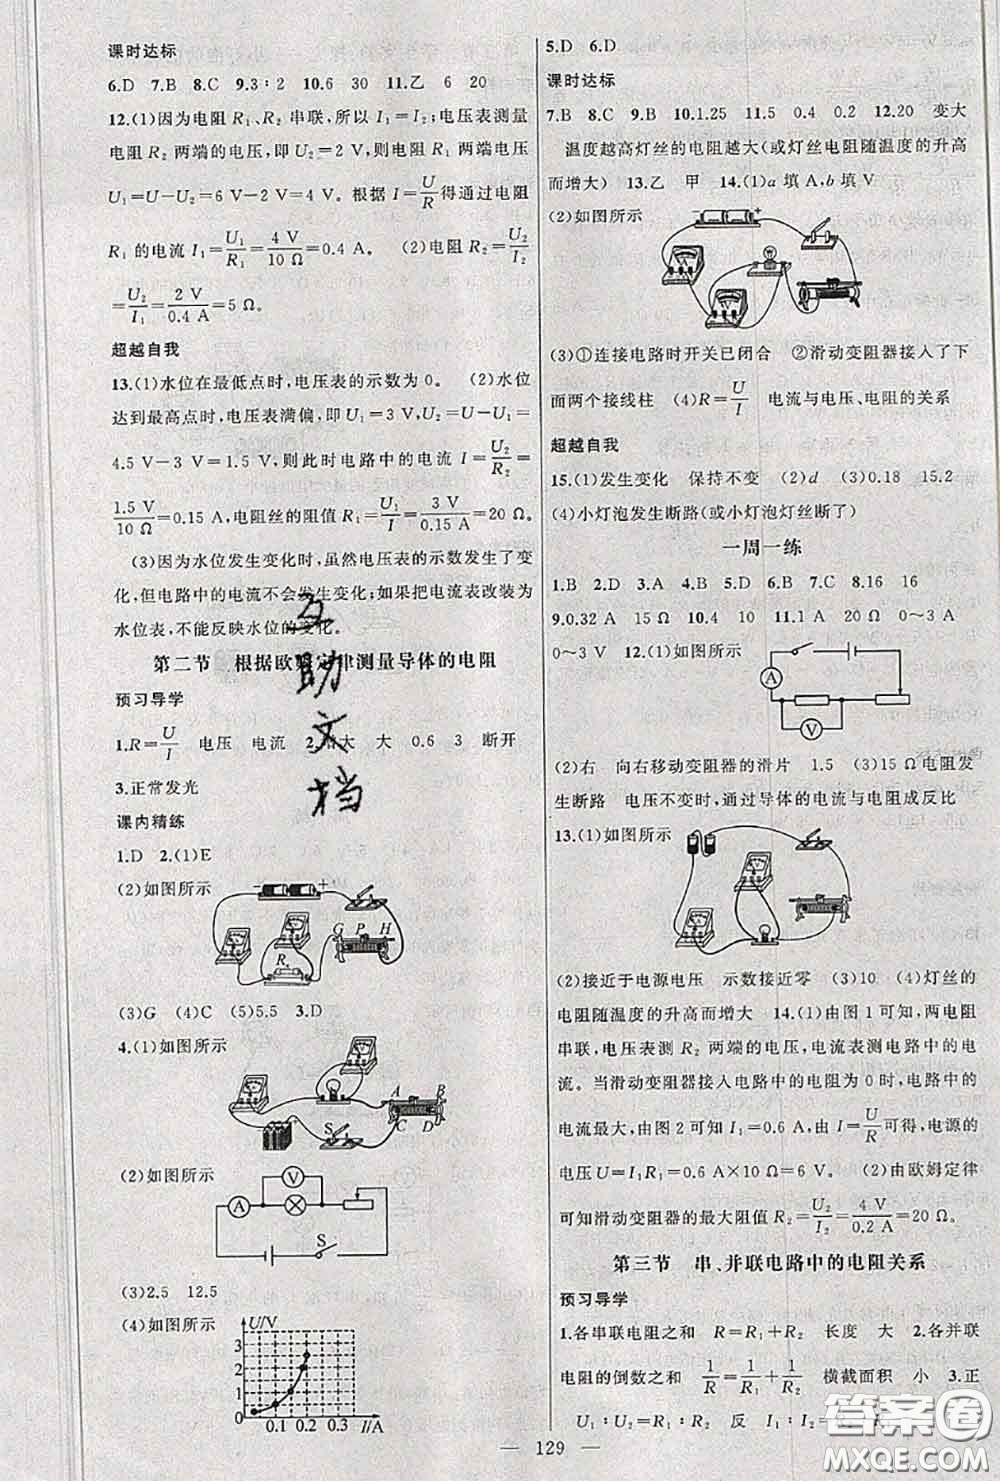 课时达标
6.D 7.B 8.C 9.3∶2 10.6 30 11.乙 6 20
12.(1)因为电阻R₁、R₂串联,所以I₁=I₂;电压表测量
电阻R₂两端的电压,即U₂=2 V,则电阻R₁两端电压
U₁=U-U₂=6 V-2 V=4 V。根据I=U/R得通过电阻
R₁的电流I₁=U₁/R₁=4 V/10 Ω=0.4 A。 (2)电阻R₂=U₂/I₂
=U₂/I₁=2 V/0.4 A=5 Ω。
超越自我
13.(1)水位在最低点时,电压表的示数为0。 (2)水位
达到最高点时,电压表满偏,即U₁=3 V,U₂=U-U₁=
4.5 V-3 V=1.5 V,则此时电路中的电流I=U₂/R₂=
1.5 V/10 Ω=0.15 A,电阻丝的阻值R₁=U₁/I=3 V/0.15 A=20 Ω。
(3)因为水位发生变化时,虽然电压表的示数发生了变
化,但电路中的电流不会发生变化;如果把电流表改装为
水位表,不能反映水位的变化。
第二节 根据欧姆定律测量导体的电阻
预习导学
1.R=U/I 电压 电流 2.最大 大 0.6 3 断开
3.正常发光
课内精练
1.D 2.(1)E
(2)如图所示
G P H
Rₓ
(3)G (4)C (5)5.5 3.D
4.(1)如图所示
A B
S C D
(2)如图所示
V
A
S
(3)2.5 12.5
(4)如图所示
U/V
3
2
1
0 0.1 0.2 0.3 I/A
互助文档
5.D 6.D
课时达标
7.B 8.C 9.B 10.1.25 11.5 0.4 0.2 12.20 变大
温度越高灯丝的电阻越大(或灯丝电阻随温度的升高
而增大) 13.乙 甲 14.(1)a填A,b填V
(2)如图所示
(3)①连接电路时开关已闭合 ②滑动变阻器接入了下
面两个接线柱 (4)R=U/I 电流与电压、电阻的关系
超越自我
15.(1)发生变化 保持不变 (2)d (3)0.18 15.2
(4)小灯泡发生断路(或小灯泡灯丝断了)
一周一练
1.B 2.D 3.A 4.B 5.D 6.B 7.C 8.16 16
9.0.32 A 15 Ω 10.4 10 11.1 A 20 Ω 0～3 A
0～3 V 12.(1)如图所示
A
V
(2)右 向右移动变阻器的滑片 1.5 (3)15 Ω电阻发
生断路 电压不变时,通过导体的电流与电阻成反比
13.(1)如图所示
(2)接近于电源电压 示数接近零 (3)10 (4)灯丝的
电阻随温度的升高而增大 14.(1)由图1可知,两电阻
串联,电压表测R₂两端的电压,电流表测电路中的电
流。当滑动变阻器接入电路中的电阻为0时,电路中的
电流最大,由图2可知I₁=0.6 A,由I=U/R可得,电源的
电压U=I₁R₁=0.6 A×10 Ω=6 V。 (2)由欧姆定律
可知滑动变阻器的最大阻值R₂=U₂/I₂=4 V/0.2 A=20 Ω。
第三节 串、并联电路中的电阻关系
预习导学
1.各串联电阻之和 R=R₁+R₂ 长度 大 2.各并联
电阻的倒数之和 1/R=1/R₁+1/R₂ 横截面积 小 3.正
U₁∶U₂=R₁∶R₂ 反 I₁∶I₂=
— 129 —
答案圈
MXQE.COM